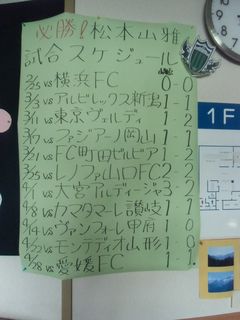 必勝！松本山雅
試合スケジュール
2/25 vs 横浜FC 0-0
3/3 vs アルビレックス新潟 1-1
3/11 vs 東京ヴェルディ 1-2
3/17 vs ファジアーノ岡山 1-1
3/21 vs FC町田ゼルビア 1-2
3/25 vs レノファ山口FC 2-2
4/1 vs 大宮アルディージャ 3-2
4/8 vs カマタマーレ讃岐 1-1
4/14 vs ヴァンフォーレ甲府 1-0
4/22 vs モンテディオ山形 1-0
4/28 vs 愛媛FC 1-1
1F